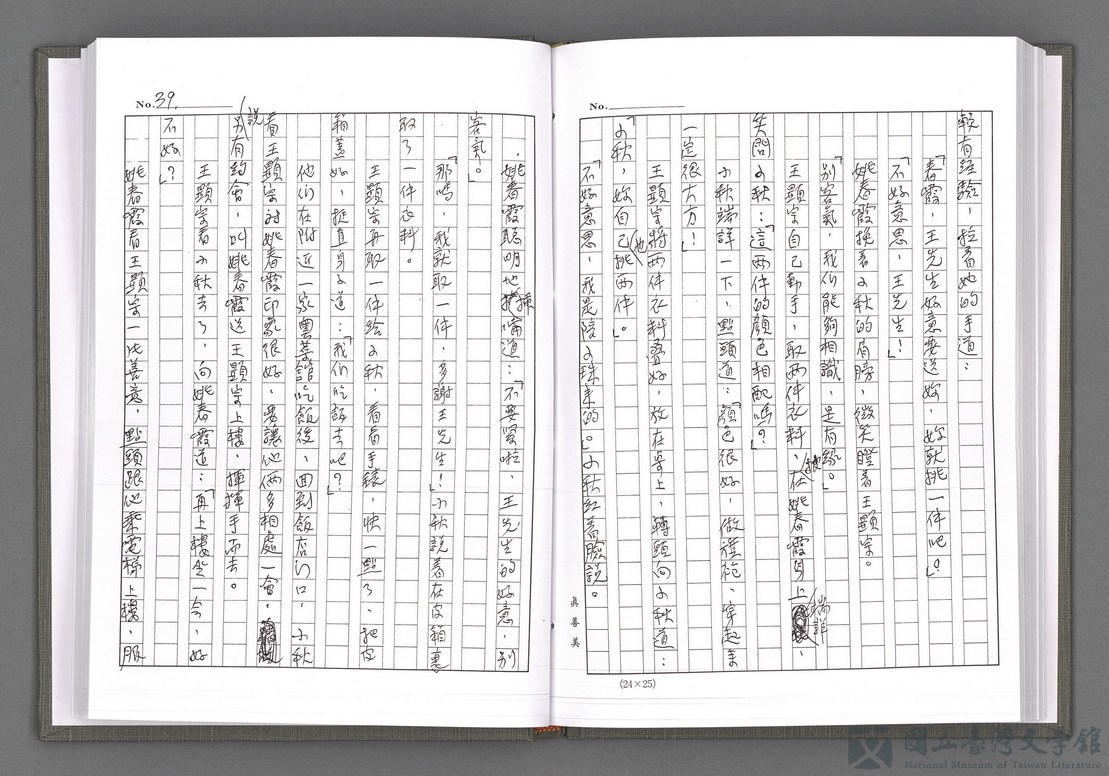 No.
較有經驗，拉着她的手道：
「春霞，王先生好意要送妳，妳就挑一件吧」？
「不好意思，王先生」！
姚春霞挽着小秋的肩膀，微笑瞪着王顯宗。
「別客氣，我們能夠相識，是有緣」。
王顯宗自己動手，取兩件衣料，披在姚春霞身上端詳，
笑問小秋：「這兩件的顏色相配嗎」？
小秋端詳一下，點頭道：「顏色很好，做旗袍、穿起來
一定很大方」！
王顯宗將兩件衣料疊好，放在椅上，轉頭向小秋道：
「小秋，妳自己也挑兩件」。
「不好意思，我是陪小珠來的」。小秋紅着臉說。
眞善美
(24×25)
No. 39.
姚春霞聰明地插嘴道：「不要緊啦，王先生的好意，別
客氣」。
「那嗎，我就取一件，多謝王先生」！小秋說着在皮箱裏
取了一件衣料。
王顯宗再取一件給小秋，看看手錶，快一點了，把皮
箱蓋好，挺直身子道：「我們吃飯去吧」？
他們在附近一家雲華館吃飯後，回到飯店門口，小秋
看王顯宗對姚春霞印象很好，要讓他倆多相處一會，
說另有約會，叫姚春霞送王顯宗上樓，揮揮手而去。
王顯宗看小秋去了，向姚春霞道：「再上樓坐一會，好
不好」？
姚春霞看王顯宗一片善意，點頭跟他乘電梯上樓，服
國立臺灣文學館
National Museum of Taiwan Literature